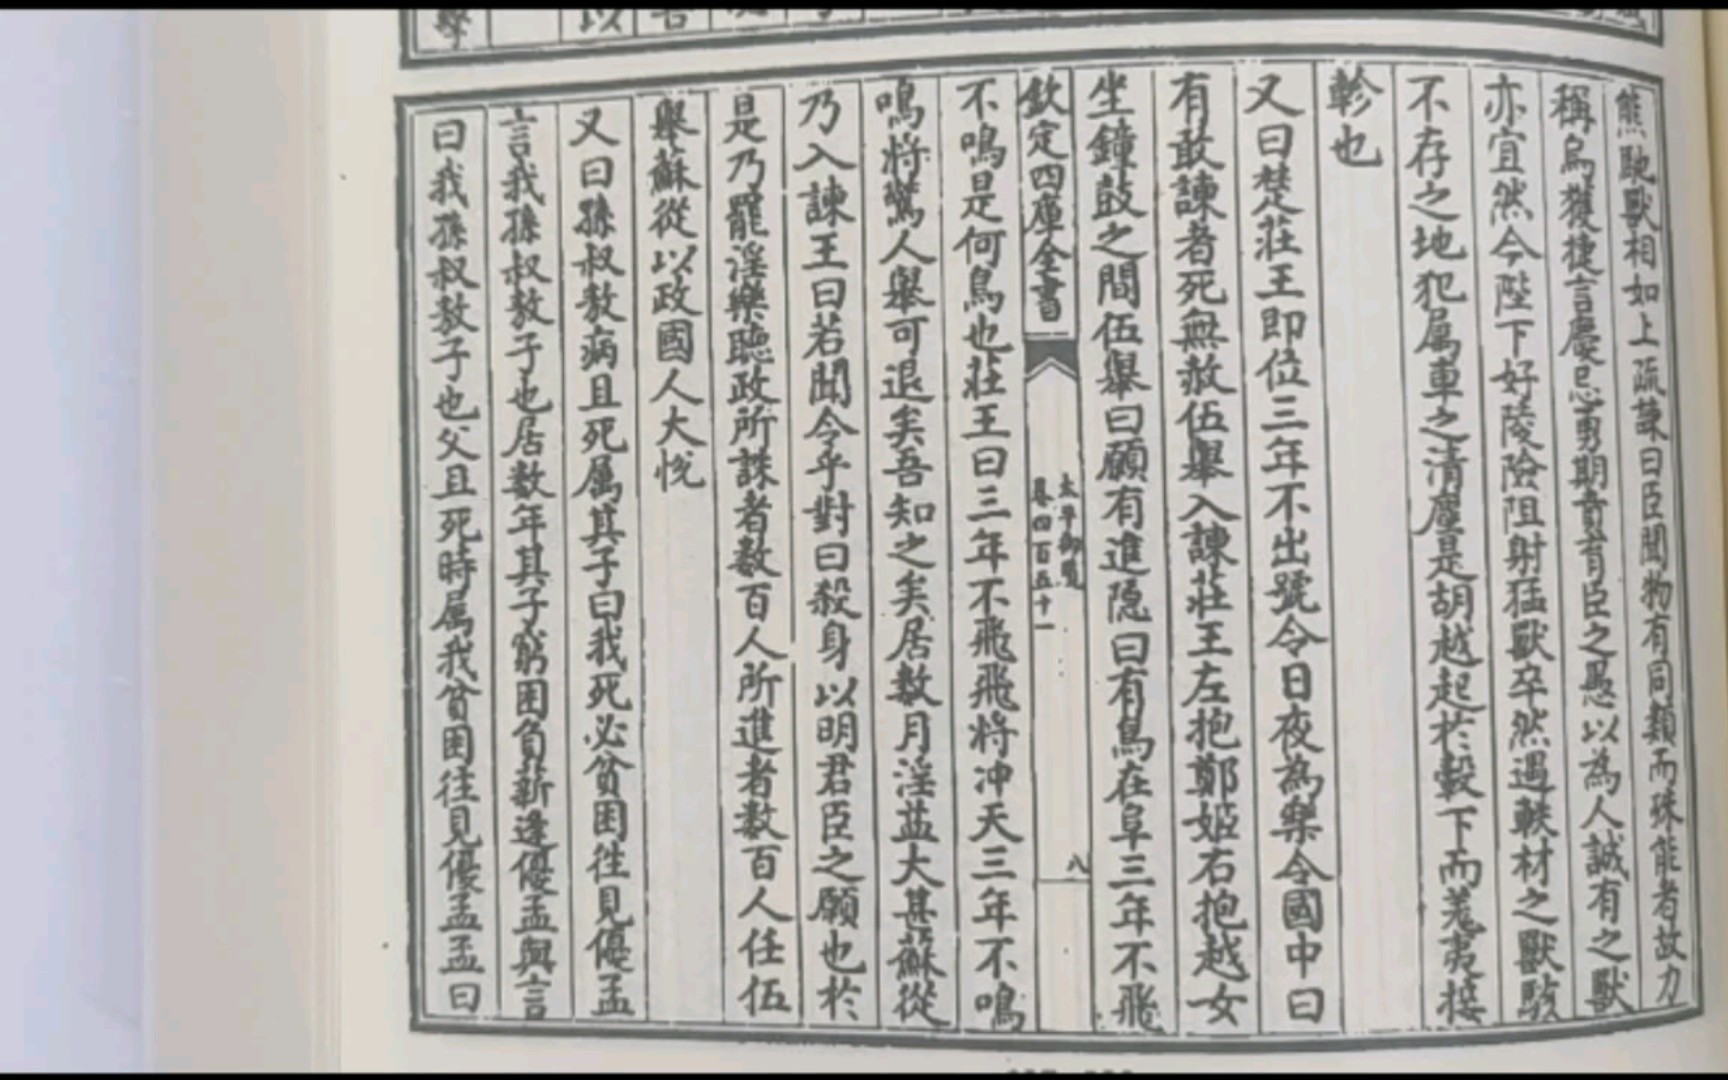 熊馳獸相如上疏諫曰臣聞物有同類而殊能者故力
稱烏獲捷言慶忌勇期賁育臣之愚以為人誠有之獸
亦宜然今陛下好陵險阻射猛獸卒然遇軼材之獸駭
不存之地犯属車之清塵是胡越起於轂下而羌夷接
軫也
又曰楚莊王即位三年不出號令日夜為樂令國中曰
有敢諫者死無赦伍舉入諫莊王左抱鄭姬右抱越女
坐鐘鼓之間伍舉曰願有進隠曰有鳥在阜三年不飛
欽定四庫全書
太平御覽
卷四百五十一
八
不鳴是何鳥也莊王曰三年不飛飛將冲天三年不鳴
鳴將驚人舉可退矣吾知之矣居數月淫益大甚蘇從
乃入諫王曰若聞令乎對曰殺身以明君臣之願也於
是乃罷淫樂聽政所誅者数百人所進者数百人任伍
舉蘇從以政國人大悅
又曰孫叔敖病且死属其子曰我死必貧困往見優孟
言我孫叔敖子也居数年其子窮困負薪逢優孟與言
曰我孫叔敖子也父且死時属我貧困往見優孟孟曰